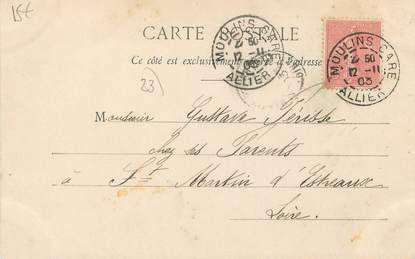 15€
CARTE POSTALE
Ce côté est exclusivement réservé à l'adresse
MOULINS GARE
2 50
12 -11
03
ALLIER
MOULINS GARE
2 50
12 -11
03
ALLIER
23
Monsieur Gustave
chez ses Parents
à St Martin d'Estreaux
Loire.